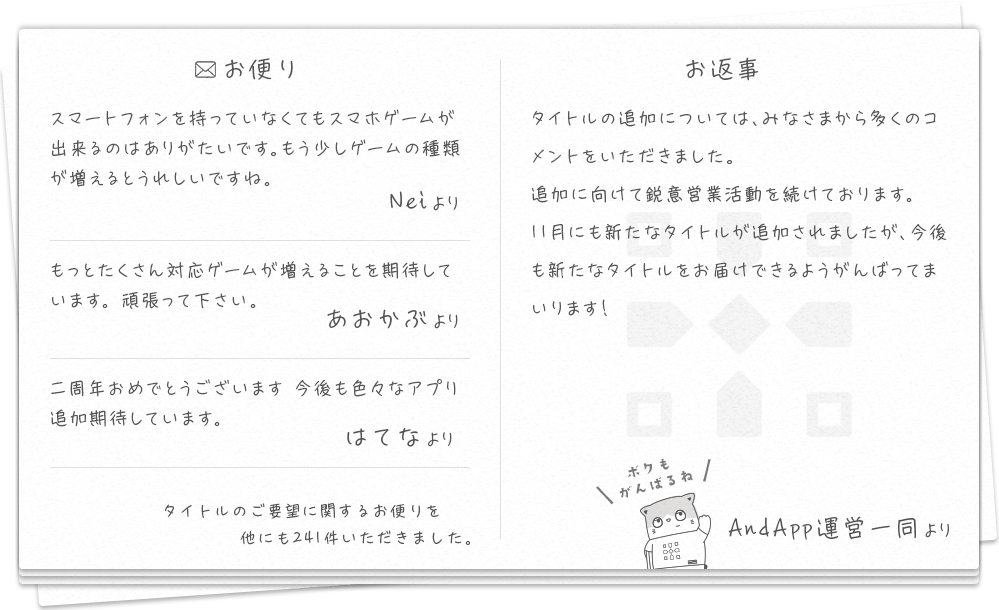 お便り
スマートフォンを持っていなくてもスマホゲームが
出来るのはありがたいです。もう少しゲームの種類
が増えるとうれしいですね。
Neiより
もっとたくさん対応ゲームが増えることを期待して
います。頑張って下さい。
あおかぶより
二周年おめでとうございます 今後も色々なアプリ
追加期待しています。
はてなより
タイトルのご要望に関するお便りを
他にも241件いただきました。
お返事
タイトルの追加については、みなさまから多くのコ
メントをいただきました。
追加に向けて鋭意営業活動を続けております。
11月にも新たなタイトルが追加されましたが、今後
も新たなタイトルをお届けできるようがんばってま
いります!
ボクも
がんばるね
AndApp運営一同より